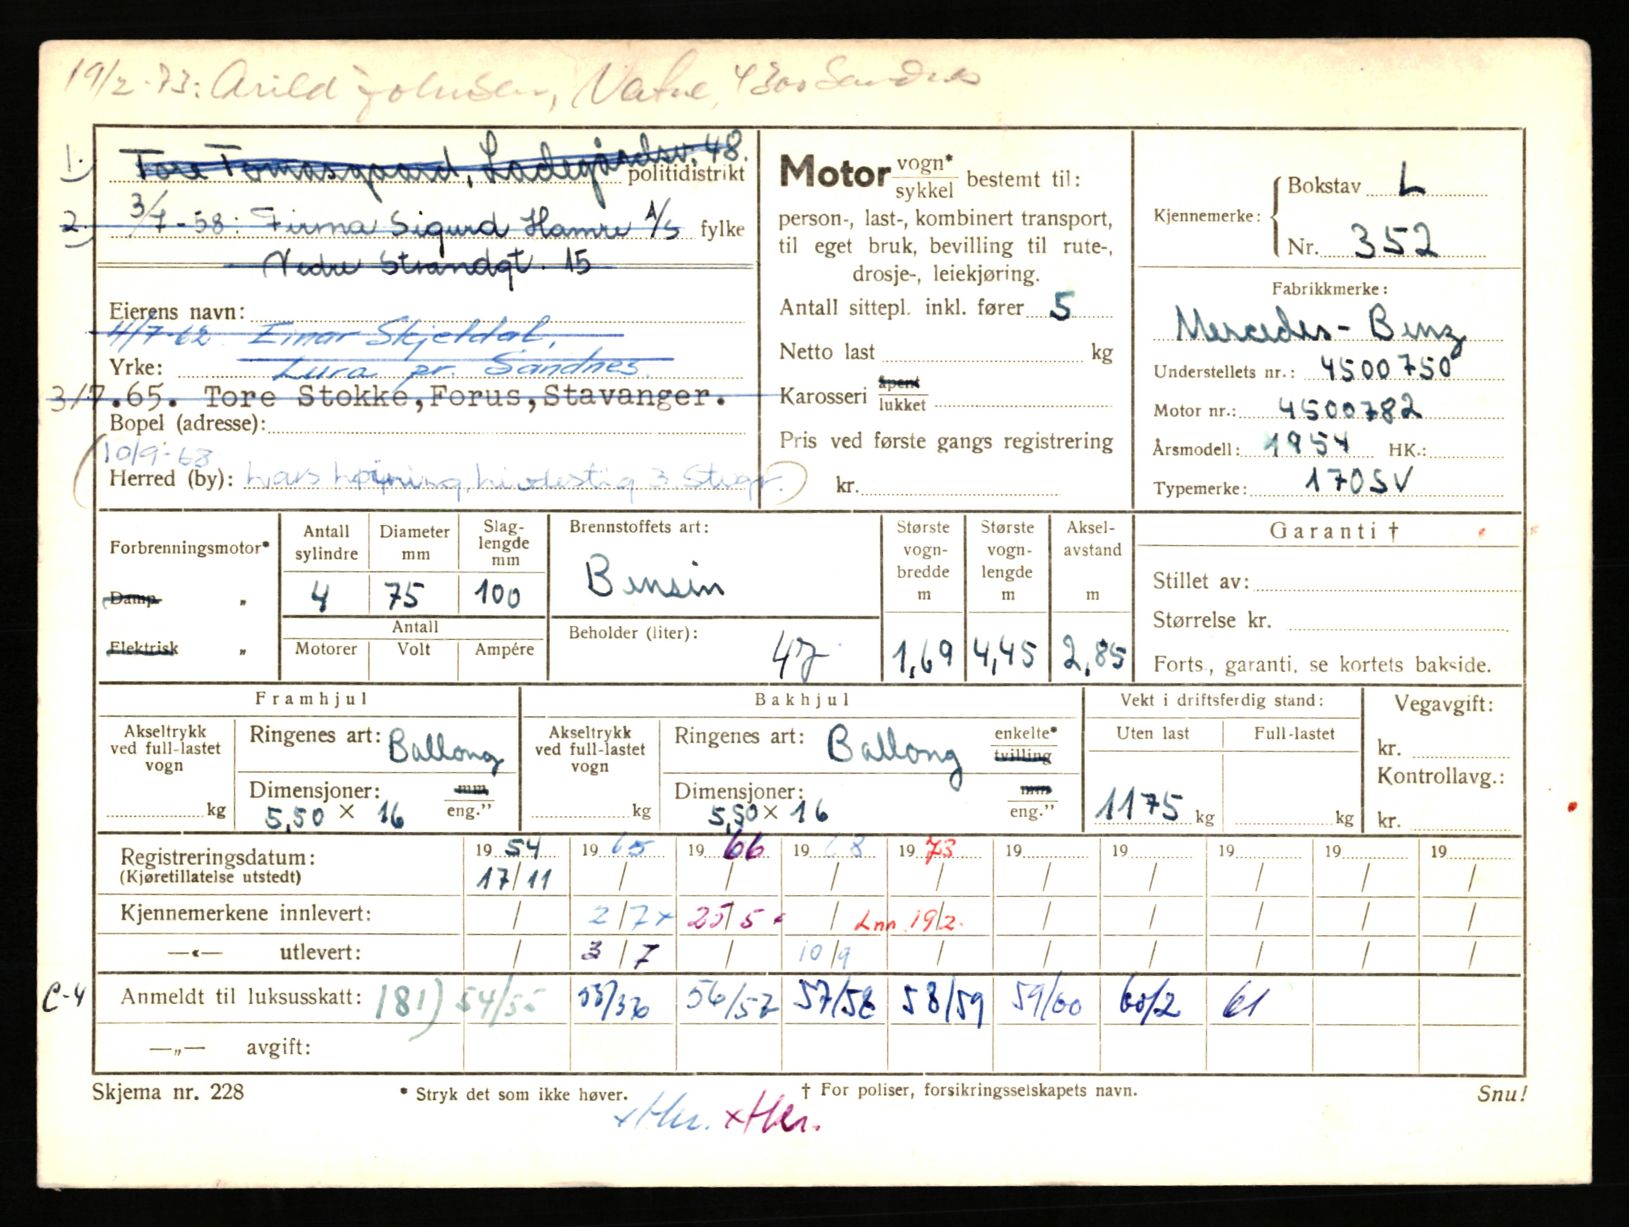 19/2-73: Arild Johnsen, Vatne, 4300 Sandnes
1.) Tore Tomasgaard, Ladegårdsv. 48.
politidistrikt
2.) 3/7-58: Firma Sigurd Hamre A/S fylke
Nedre Strandgt. 15
Eierens navn:
4/7-62 Einar Skjeldal,
Yrke: Lura pr. Sandnes
3/7.65. Tore Stokke,Forus,Stavanger.
Bopel (adresse):
(10/9-68
Herred (by): Lars 3 Stvgr.)
Motor vogn* sykkel bestemt til:
person-, last-, kombinert transport,
til eget bruk, bevilling til rute-,
drosje-, leiekjøring.
Antall sittepl. inkl. fører 5
Netto last kg
Karosseri åpent lukket
Pris ved første gangs registrering
kr.
Kjennemerke: Bokstav L
Nr. 352
Fabrikkmerke:
Mercedes-Benz
Understellets nr.: 4500750
Motor nr.: 4500782
Årsmodell: 1954 HK.:
Typemerke: 170SV
Forbrenningsmotor*
Damp „
Elektrisk „
Antall sylindre
4
Diameter mm
75
Slag-lengde mm
100
Antall
Motorer Volt Ampére
Brennstoffets art:
Bensin
Beholder (liter):
47
Største vogn-bredde m
1,69
Største vogn-lengde m
4,45
Aksel-avstand m
2,85
Garanti †
Stillet av:
Størrelse kr.
Forts., garanti, se kortets bakside.
Framhjul
Akseltrykk ved full-lastet vogn
kg
Ringenes art: Ballong
Dimensjoner: mm
5,50 x 16 eng."
Bakhjul
Akseltrykk ved full-lastet vogn
kg
Ringenes art: Ballong enkelte* tvilling
Dimensjoner: mm
5,50 x 16 eng."
Vekt i driftsferdig stand:
Uten last Full-lastet
1175 kg kg
Vegavgift:
kr.
Kontrollavg.:
kr.
Registreringsdatum: 19 54 19 65 19 66 19 68 19 73 19 19 19 19 19
(Kjøretillatelse utstedt) 17/11 / / / / / / / / /
Kjennemerkene innlevert: / 2/7 x 25/5 x / Inn 19/2. / / / / /
—«— utlevert: / 3/7 / 10/9 / / / / / /
C-4 Anmeldt til luksusskatt: 181) 54/55 55/56 56/57 57/58 58/59 59/60 60/2 61
—„— avgift:
Skjema nr. 228
* Stryk det som ikke høver.
† For poliser, forsikringsselskapets navn.
Snu!